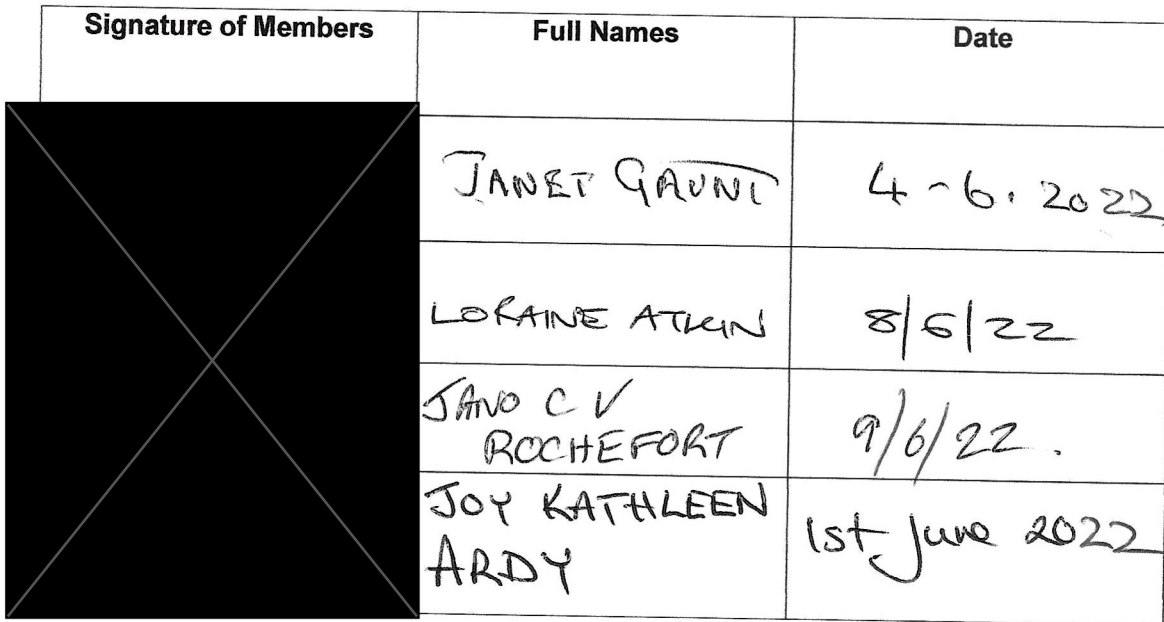 Signature of Members Full Names Date
JANET GAUNT 4-6.2022
LORAINE ATKIN 8/6/22
JANO C V
ROCHEFORT 9/6/22.
JOY KATHLEEN
ARDY 1st June 2022